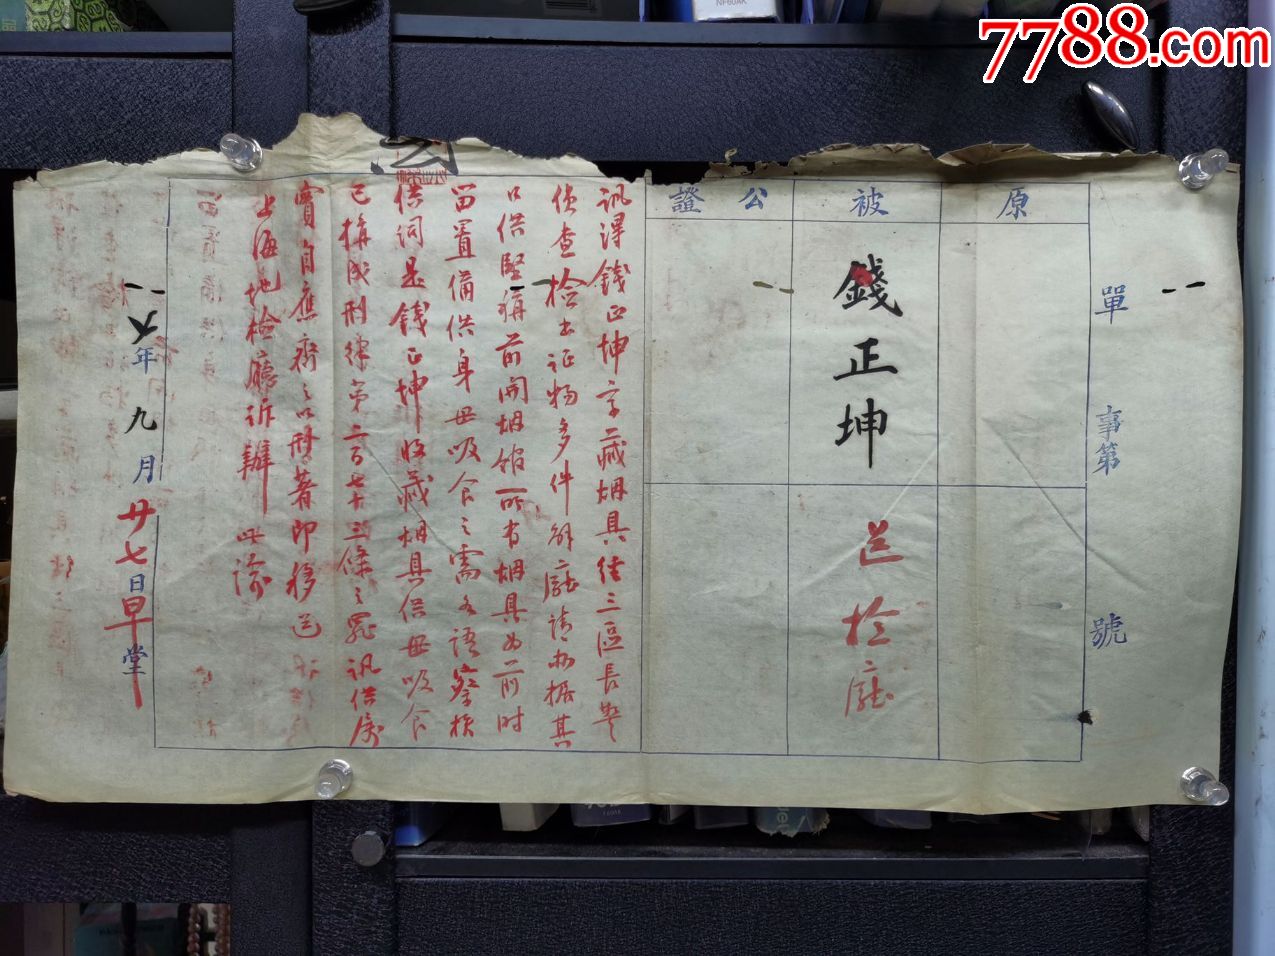 7788.com
單 事第 號
原
被
公證
錢正坤
送檢廳
訊得錢正坤家藏烟具經三區長警
偵查檢出証物多件解廳請办據其
口供堅稱前開烟館所有烟具为前時
留置備供身母吸食之需各語察核
供詞是錢正坤收藏烟具供母吸食
已構成刑律第二百七十三條之罪訊供屬
實自應齊之以刑著即移送
上海地檢廳訴辦 此諭
六年九月廿七日早堂